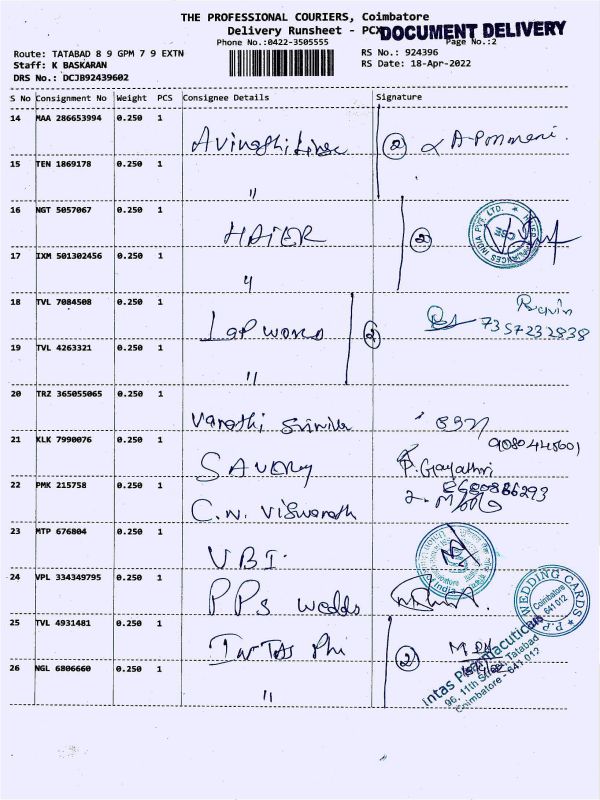 THE PROFESSIONAL COURIERS, Coimbatore
Delivery Runsheet - PCX
DOCUMENT DELIVERY
Phone No.:0422-3505555
Page No.:2
Route: TATABAD 8 9 GPM 7 9 EXTN
RS No.: 924396
Staff: K BASKARAN
RS Date: 18-Apr-2022
DRS No.: DCJB92439602
S No Consignment No Weight PCS Consignee Details Signature
14 MAA 286653994 0.250 1
2
15 TEN 1869178 0.250 1
"
16 NGT 5057067 0.250 1
HAIER 2
17 IXM 501302456 0.250 1
"
18 TVL 7084508 0.250 1
Lap world 2
7357232838
19 TVL 4263321 0.250 1
"
20 TRZ 365055065 0.250 1
21 KLK 7990076 0.250 1
SAVERY P. Gayathri
22 PMK 215758 0.250 1
C.N. Viswanath
23 MTP 676804 0.250 1
UBI
24 VPL 334349795 0.250 1
PPS wedds
WEDDING CARDS
P.P.S
Coimbatore
641 012
25 TVL 4931481 0.250 1
2
Intas Pharmaceuticals
96, 11th Street, Tatabad
Coimbatore - 641 012
26 NGL 6806660 0.250 1
"